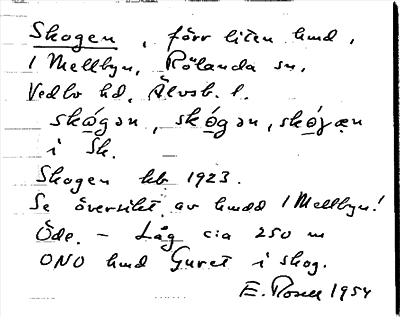 Skogen, förr liten hmd,
1 Mellbyn, Rölanda sn,
Vedbo hd, Älvsb. l.
skógən, skógən, skóγæn
i Sk.
Skogen kb 1923.
Se översikt av hmdd 1 Mellbyn!
Öde. – Låg c:a 250 m
ONO hmd Guret i skog.
E. Rosell 1954